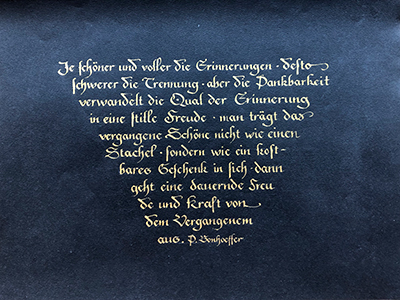 Je schöner und voller die Erinnerungen · desto
schwerer die Trennung · aber die Dankbarkeit
verwandelt die Qual der Erinnerung
in eine stille Freude · man trägt das
vergangene Schöne nicht wie einen
Stachel · sondern wie ein kost-
bares Geschenk in sich · dann
geht eine dauernde Freu
de und Kraft von
dem Vergangenem
aus. D. Bonhoeffer